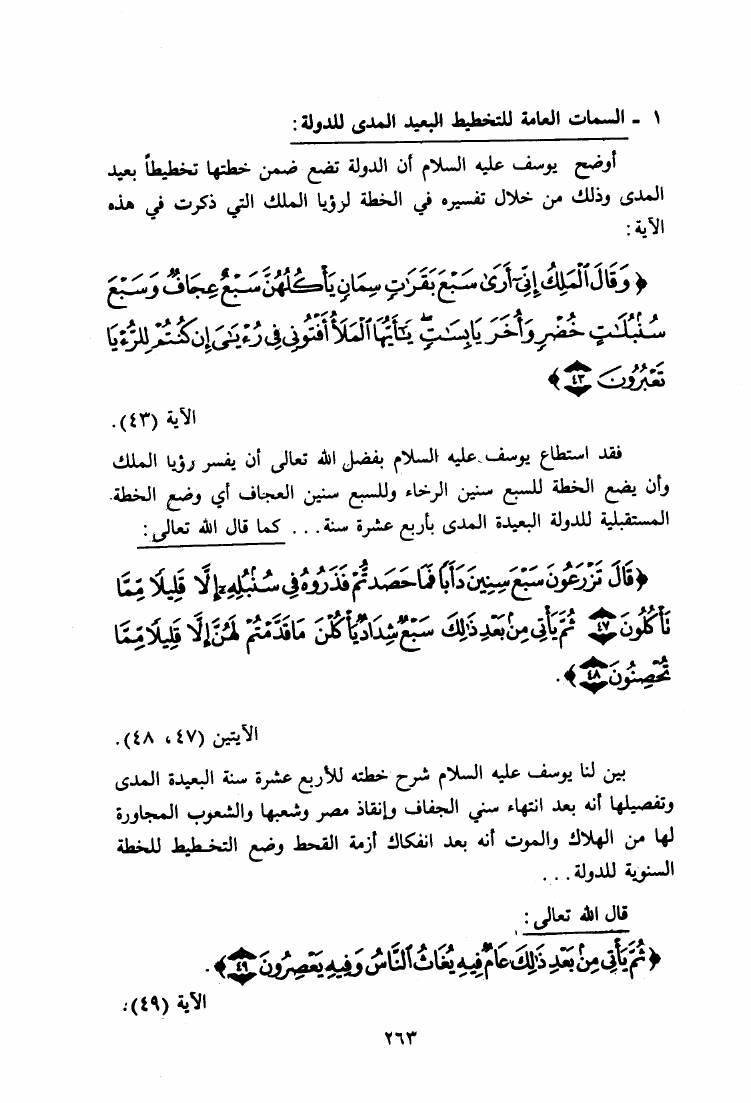 ١ - السمات العامة للتخطيط البعيد المدى للدولة:
أوضح يوسف عليه السلام أن الدولة تضع ضمن خطتها تخطيطاً بعيد
المدى وذلك من خلال تفسيره في الخطة لرؤيا الملك التي ذكرت في هذه
الآية:
﴿ وَقَالَ ٱلْمَلِكُ إِنِّىٓ أَرَىٰ سَبْعَ بَقَرَٰتٍ سِمَانٍ يَأْكُلُهُنَّ سَبْعٌ عِجَافٌ وَسَبْعَ
سُنۢبُلَٰتٍ خُضْرٍ وَأُخَرَ يَابِسَٰتٍ ۖ يَٰٓأَيُّهَا ٱلْمَلَأُ أَفْتُونِى فِى رُءْيَٰىَ إِن كُنتُمْ لِلرُّءْيَا
تَعْبُرُونَ ٤٣ ﴾
الآية (٤٣).
فقد استطاع يوسف عليه السلام بفضل الله تعالى أن يفسر رؤيا الملك
وأن يضع الخطة للسبع سنين الرخاء وللسبع سنين العجاف أي وضع الخطة
المستقبلية للدولة البعيدة المدى بأربع عشرة سنة... كما قال الله تعالى:
﴿ قَالَ تَزْرَعُونَ سَبْعَ سِنِينَ دَأَبًا فَمَا حَصَدتُّمْ فَذَرُوهُ فِى سُنۢبُلِهِۦٓ إِلَّا قَلِيلًا مِّمَّا
تَأْكُلُونَ ٤٧ ثُمَّ يَأْتِى مِنۢ بَعْدِ ذَٰلِكَ سَبْعٌ شِدَادٌ يَأْكُلْنَ مَا قَدَّمْتُمْ لَهُنَّ إِلَّا قَلِيلًا مِّمَّا
تُحْصِنُونَ ٤٨ ﴾.
الآيتين (٤٧، ٤٨).
بين لنا يوسف عليه السلام شرح خطته للأربع عشرة سنة البعيدة المدى
وتفصيلها أنه بعد انتهاء سني الجفاف وإنقاذ مصر وشعبها والشعوب المجاورة
لها من الهلاك والموت أنه بعد انفكاك أزمة القحط وضع التخطيط للخطة
السنوية للدولة...
قال الله تعالى:
﴿ ثُمَّ يَأْتِى مِنۢ بَعْدِ ذَٰلِكَ عَامٌ فِيهِ يُغَاثُ ٱلنَّاسُ وَفِيهِ يَعْصِرُونَ ٤٩ ﴾.
الآية (٤٩).
٢٦٣